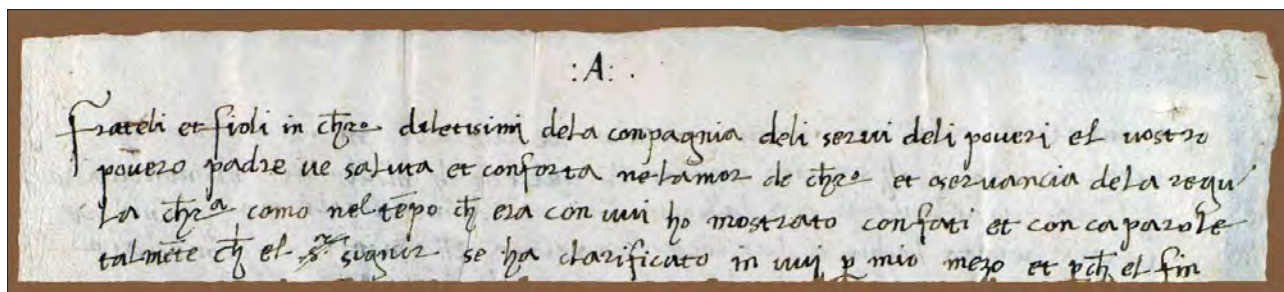 :A: .
frateli et fioli in chro diletisimi dela conpagnia deli servi deli poveri el vostro
povero padre ve saluta et conforta nelamor de chro et oservancia dela regu
la chra como nel tepo ch era con vui ho mostrato con fati et con parole
talmete ch el signor se ha clarificato in vui p mio mezo et pch el fin